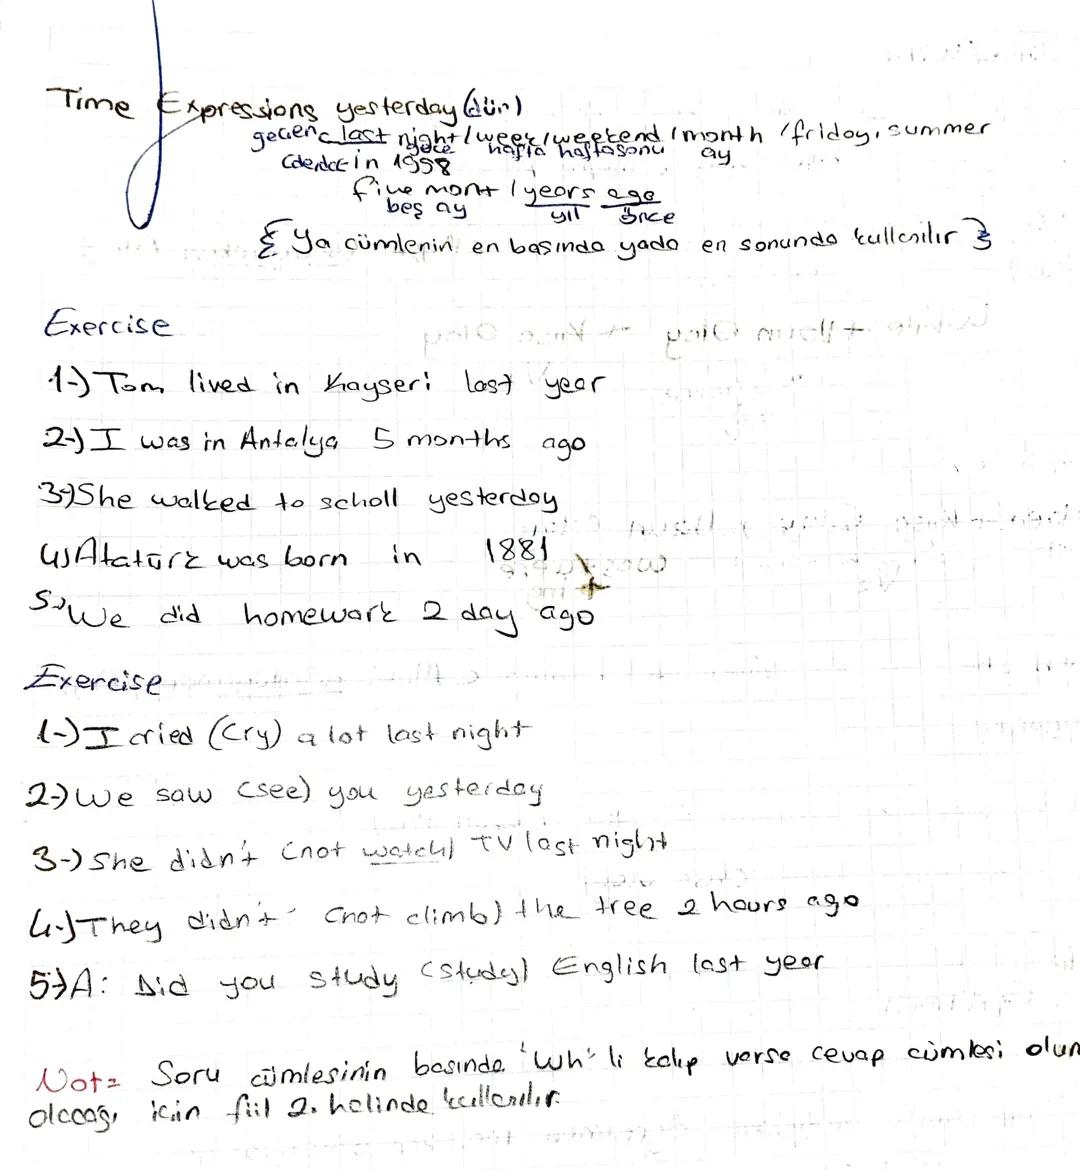 Time Expressions yesterday (dün)
geçen last night / week / weekend / month / friday, summer
gece hafta haftasonu ay
in 1998
five mont / years ago
beş ay yıl önce
{ Ya cümlenin en başında yada en sonunda kullanılır }
Exercise
1-) Tom lived in Kayseri last year
2-) I was in Antalya 5 months ago
3-) She walked to scholl yesterday
4-) Atatürk was born in 1881
5-) We did homework 2 day ago
Exercise
1-) I cried (Cry) a lot last night
2-) We saw (see) you yesterday
3-) She didn't (not watch) TV last night
4-) They didn't (not climb) the tree 2 hours ago
5-) A: Did you study (study) English last year
Not= Soru cümlesinin başında 'Wh' li kalıp varsa cevap cümlesi olum
olacağı için fiil 2. halinde kullanılır.